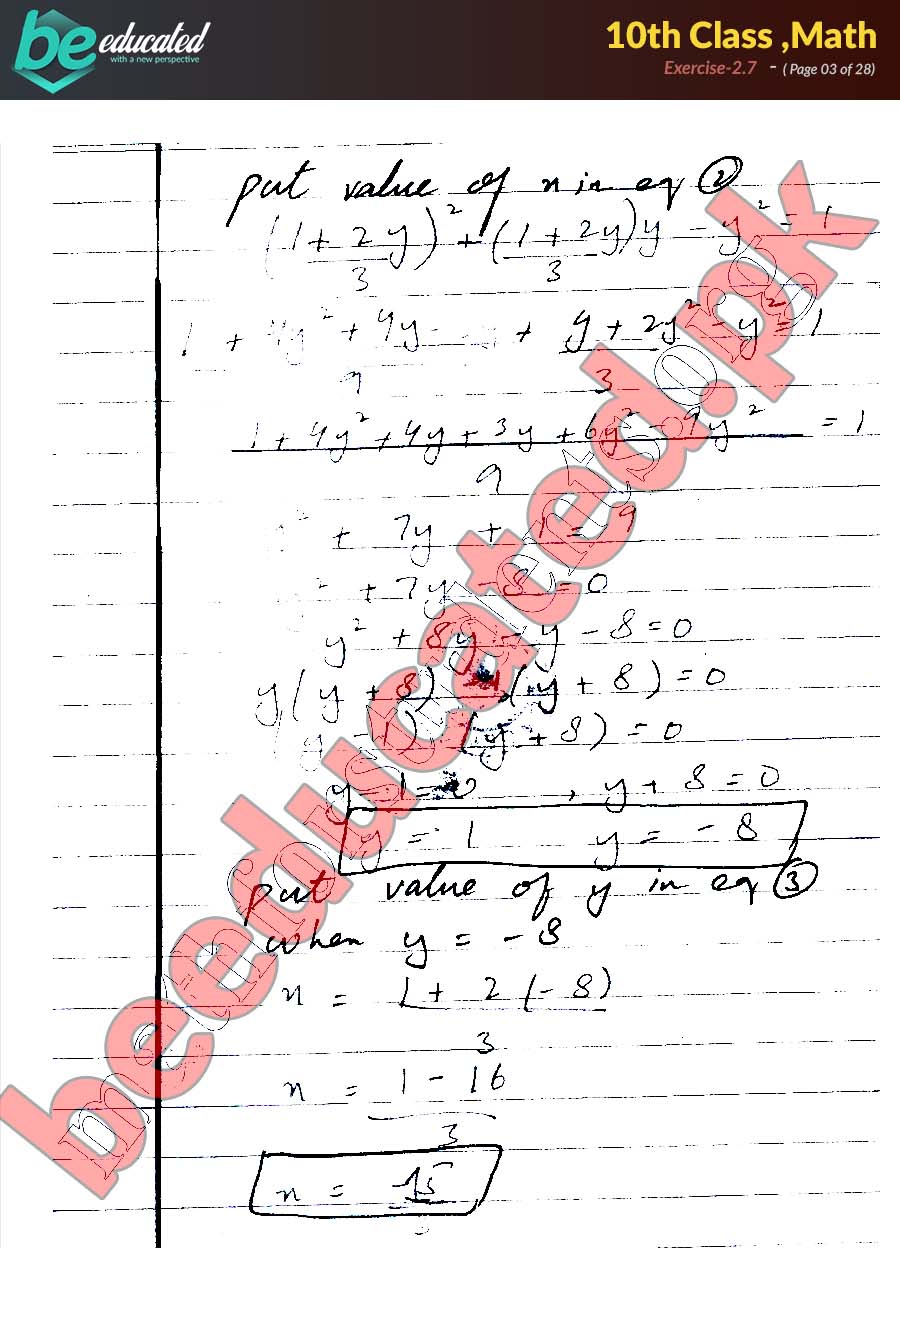 be educated
with a new perspective
10th Class ,Math
Exercise-2.7 - ( Page 03 of 28)
put value of x in eq ②
(1 + 2y / 3)² + (1 + 2y / 3)y - y² = 1
1 + 4y² + 4y / 9 + y + 2y² / 3 - y² = 1
1 + 4y² + 4y + 3y + 6y² - 9y² / 9 = 1
² + 7y + 1 = 9
² + 7y - 8 = 0
y² + 8y - y - 8 = 0
y(y + 8) - 1(y + 8) = 0
(y - 1) (y + 8) = 0
y - 1 = 0 , y + 8 = 0
y = 1 y = - 8
put value of y in eq ③
when y = - 8
x = 1 + 2(-8) / 3
x = 1 - 16 / 3
x = -15 / 3
beeducated.pk